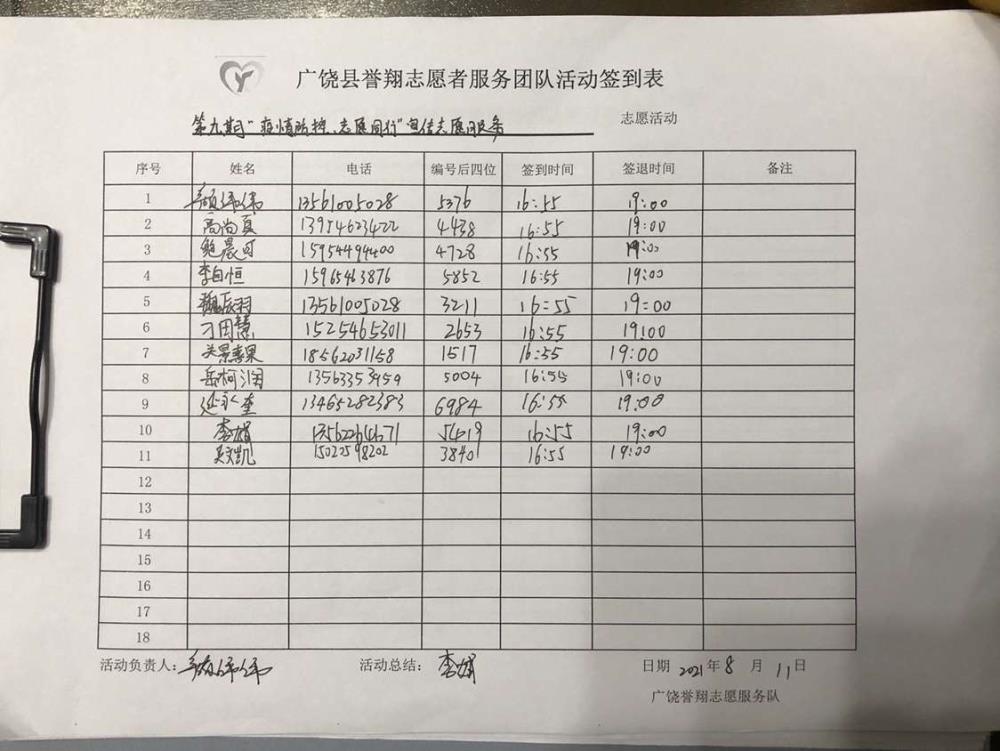 广饶县誉翔志愿者服务团队活动签到表
第九期“疫情防控、志愿同行”宣传志愿服务 志愿活动
序号 姓名 电话 编号后四位 签到时间 签退时间 备注
1 伟伟 13561005028 5376 16:55 19:00
2 高尚真 13954623422 4438 16:55 19:00
3 鲍晨可 15954494400 4728 16:55 19:00
4 李自恒 15965463876 5852 16:55 19:00
5 魏辰羽 13561005028 3211 16:55 19:00
6 刁田慧 15254653011 2653 16:55 19:00
7 18562031158 1517 16:55 19:00
8 岳柯润 13563353959 5004 16:55 19:00
9 延永奎 13465282383 6984 16:55 19:00
10 李娟 13562264671 5419 16:55 19:00
11 吴文凯 15022598202 3840 16:55 19:00
12
13
14
15
16
17
18
活动负责人: 伟伟 活动总结: 李娟 日期 2021年8月11日
广饶誉翔志愿服务队